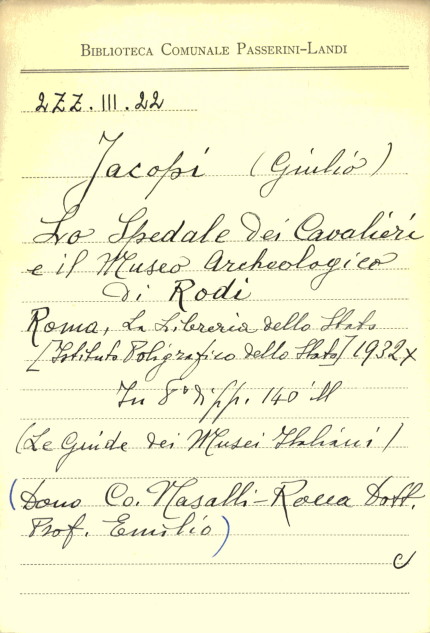 BIBLIOTECA COMUNALE PASSERINI-LANDI
2ZZ.III.22
Jacopi (Giulio)
Lo Spedale dei Cavalieri
e il Museo Archeologico
di Rodi
Roma, La Libreria dello Stato
[Istituto Poligrafico dello Stato] 1932x
In 8° di pp. 140 ill
(Le Guide dei Musei Italiani)
(Dono Co. Nasalli-Rocca Dott.
Prof. Emilio)
c